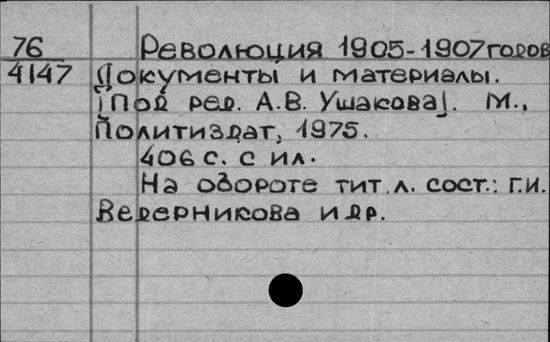 76 Революция 1905-1907 годов
4147 Документы и материалы.
[Под ред. А.В. Ушакова]. М.,
Политиздат, 1975.
406 с. с ил.
На обороте тит. л. сост.: Г.И.
Ведерникова и др.